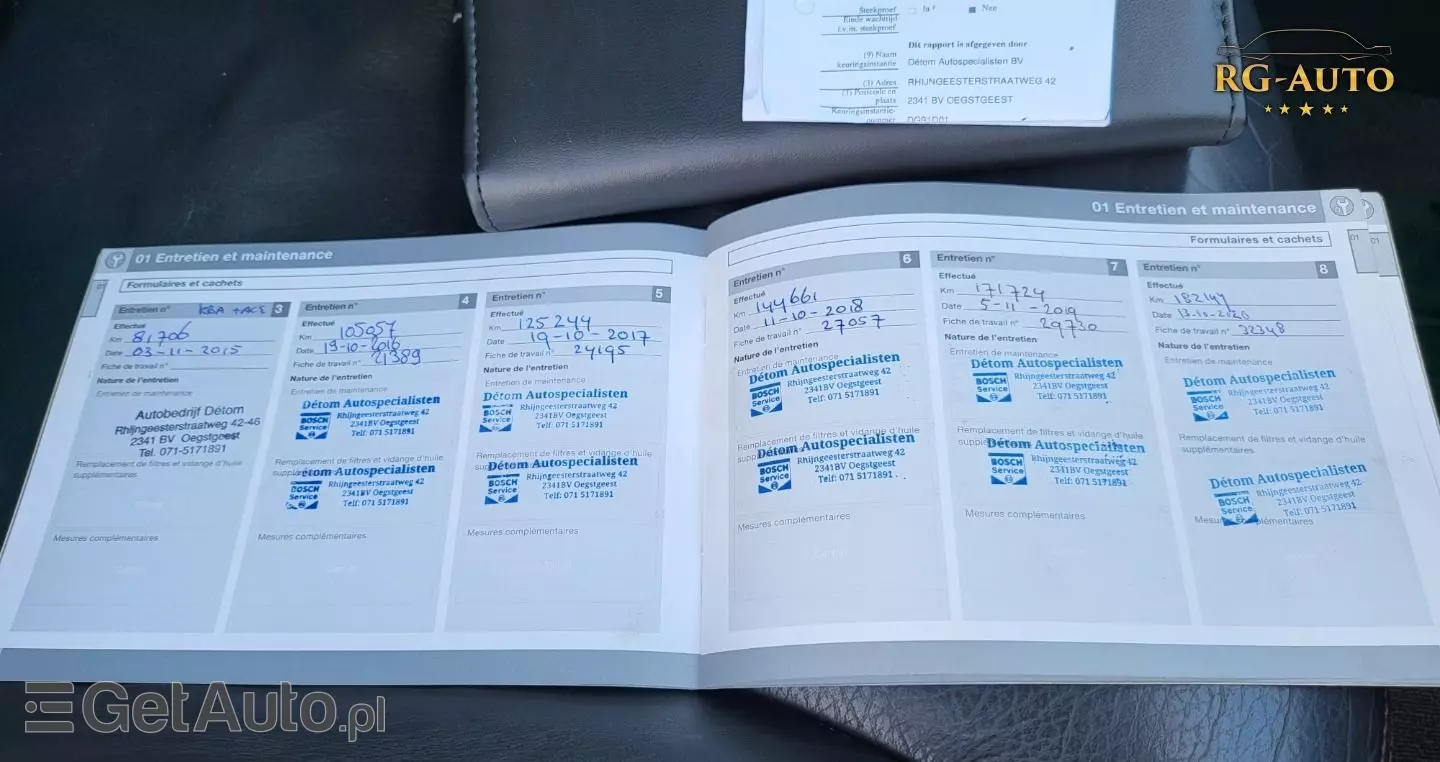 Steekproef Ja Nee
Einde wachttijd
i.v.m. steekproef
Dit rapport is afgegeven door
(9) Naam
keuringsinstantie Détom Autospecialisten BV
(3) Adres RHIJNGEESTERSTRAATWEG 42
(3) Postcode en
plaats 2341 BV OEGSTGEEST
Keuringsinstantie-
nummer
RG-AUTO
01 Entretien et maintenance
Formulaires et cachets
Entretien n° 3
Effectué
Km 81706
Date 03-11-2015
Fiche de travail n°
Nature de l'entretien
Entretien de maintenance
Autobedrijf Détom
Rhijngeesterstraatweg 42-46
2341 BV Oegstgeest
Tel. 071-5171891
Remplacement de filtres et vidange d'huile
supplémentaires
Mesures complémentaires
Entretien n° 4
Effectué
Km 105057
Date 19-10-2016
Fiche de travail n° 21389
Nature de l'entretien
Entretien de maintenance
Détom Autospecialisten
BOSCH Service
Rhijngeesterstraatweg 42
2341BV Oegstgeest
Telf: 071 5171891
Remplacement de filtres et vidange d'huile
Détom Autospecialisten
BOSCH Service
Rhijngeesterstraatweg 42
2341BV Oegstgeest
Telf: 071 5171891
Mesures complémentaires
Entretien n° 5
Effectué
Km 125244
Date 19-10-2017
Fiche de travail n° 24195
Nature de l'entretien
Entretien de maintenance
Détom Autospecialisten
BOSCH Service
Rhijngeesterstraatweg 42
2341BV Oegstgeest
Telf: 071 5171891
Remplacement de filtres et vidange d'huile
Détom Autospecialisten
BOSCH Service
Rhijngeesterstraatweg 42
2341BV Oegstgeest
Telf: 071 5171891
Mesures complémentaires
01 Entretien et maintenance
Formulaires et cachets
01 01
Entretien n° 6
Effectué
Km 144661
Date 11-10-2018
Fiche de travail n° 27057
Nature de l'entretien
Entretien de maintenance
Détom Autospecialisten
BOSCH Service
Rhijngeesterstraatweg 42
2341BV Oegstgeest
Telf: 071 5171891
Remplacement de filtres et vidange d'huile
Détom Autospecialisten
BOSCH Service
Rhijngeesterstraatweg 42
2341BV Oegstgeest
Telf: 071 5171891
Mesures complémentaires
Entretien n° 7
Effectué
Km 171724
Date 5-11-2019
Fiche de travail n° 29730
Nature de l'entretien
Entretien de maintenance
Détom Autospecialisten
BOSCH Service
Rhijngeesterstraatweg 42
2341BV Oegstgeest
Telf: 071 5171891
Remplacement de filtres et vidange d'huile
Détom Autospecialisten
BOSCH Service
Rhijngeesterstraatweg 42
2341BV Oegstgeest
Telf: 071 5171891
Mesures complémentaires
Entretien n° 8
Effectué
Km
Date
Fiche de travail n° 32348
Nature de l'entretien
Entretien de maintenance
Détom Autospecialisten
BOSCH Service
Rhijngeesterstraatweg 42
2341BV Oegstgeest
Telf: 071 5171891
Remplacement de filtres et vidange d'huile
supplémentaires
Détom Autospecialisten
BOSCH Service
Rhijngeesterstraatweg 42
2341BV Oegstgeest
Telf: 071 5171891
Mesures complémentaires
GetAuto.pl